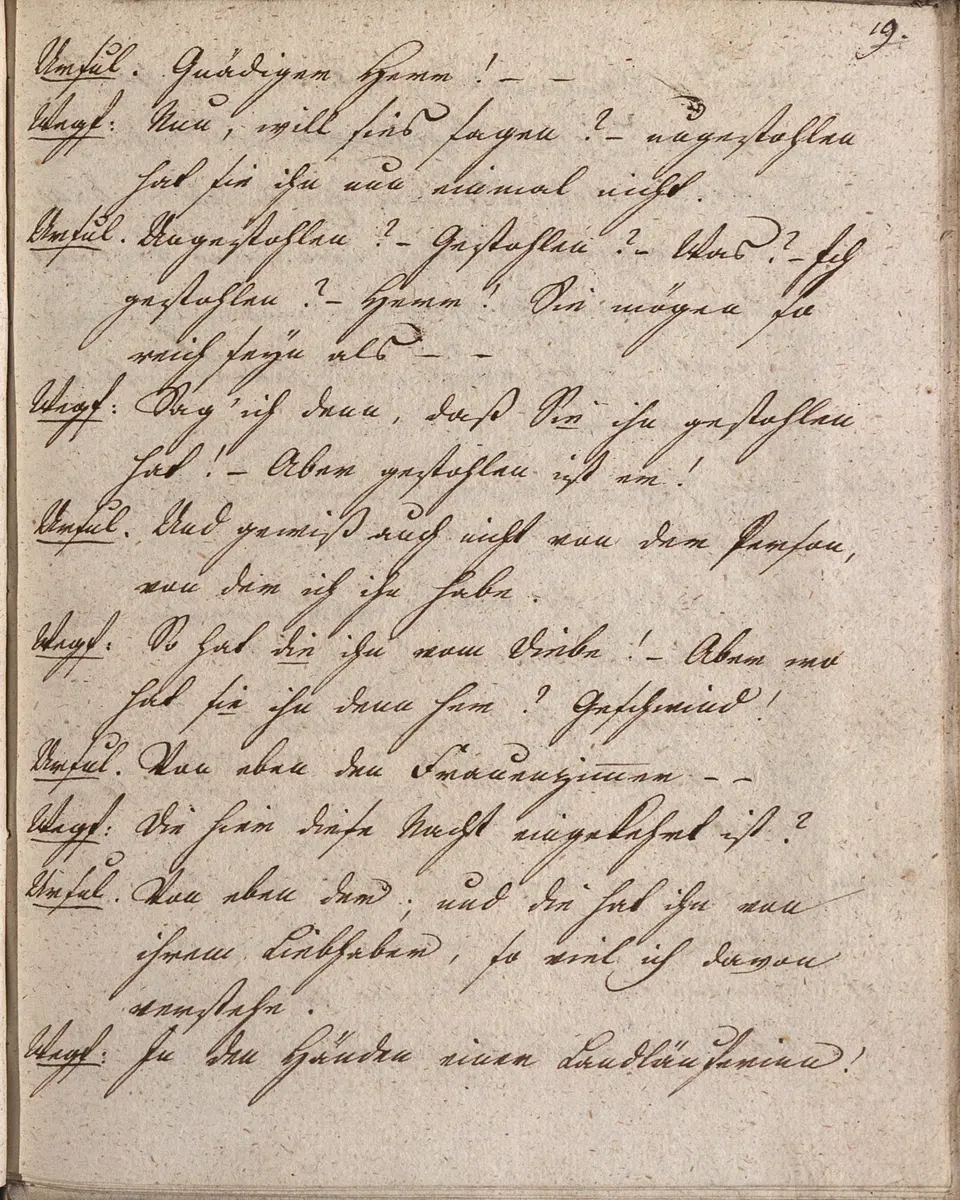 19.
Ursul. Gnädiger Herr! – –
Wegf: Nun, will sies sagen? – ungestohlen
hat sie ihn nun einmal nicht.
Ursul. Ungestohlen? – Gestohlen? – Was? – Ich
gestohlen? – Herr! Sie mögen so
reich seyn als – –
Wegf: Sag' ich denn, daß Sie ihn gestohlen
hat! – Aber gestohlen ist er!
Ursul. Und gewiß auch nicht von der Person,
von der ich ihn habe.
Wegf: So hat die ihn vom Diebe! – Aber wo
hat sie ihn denn her? Geschwind!
Ursul. Von eben den Frauenzim̅er – –
Wegf: Die hier diese Nacht eingekehrt ist?
Ursul. Von eben der; und die hat ihn von
ihrem Liebhaber, so viel ich davon
verstehe.
Wegf: In den Händen einer Landläuferinn!